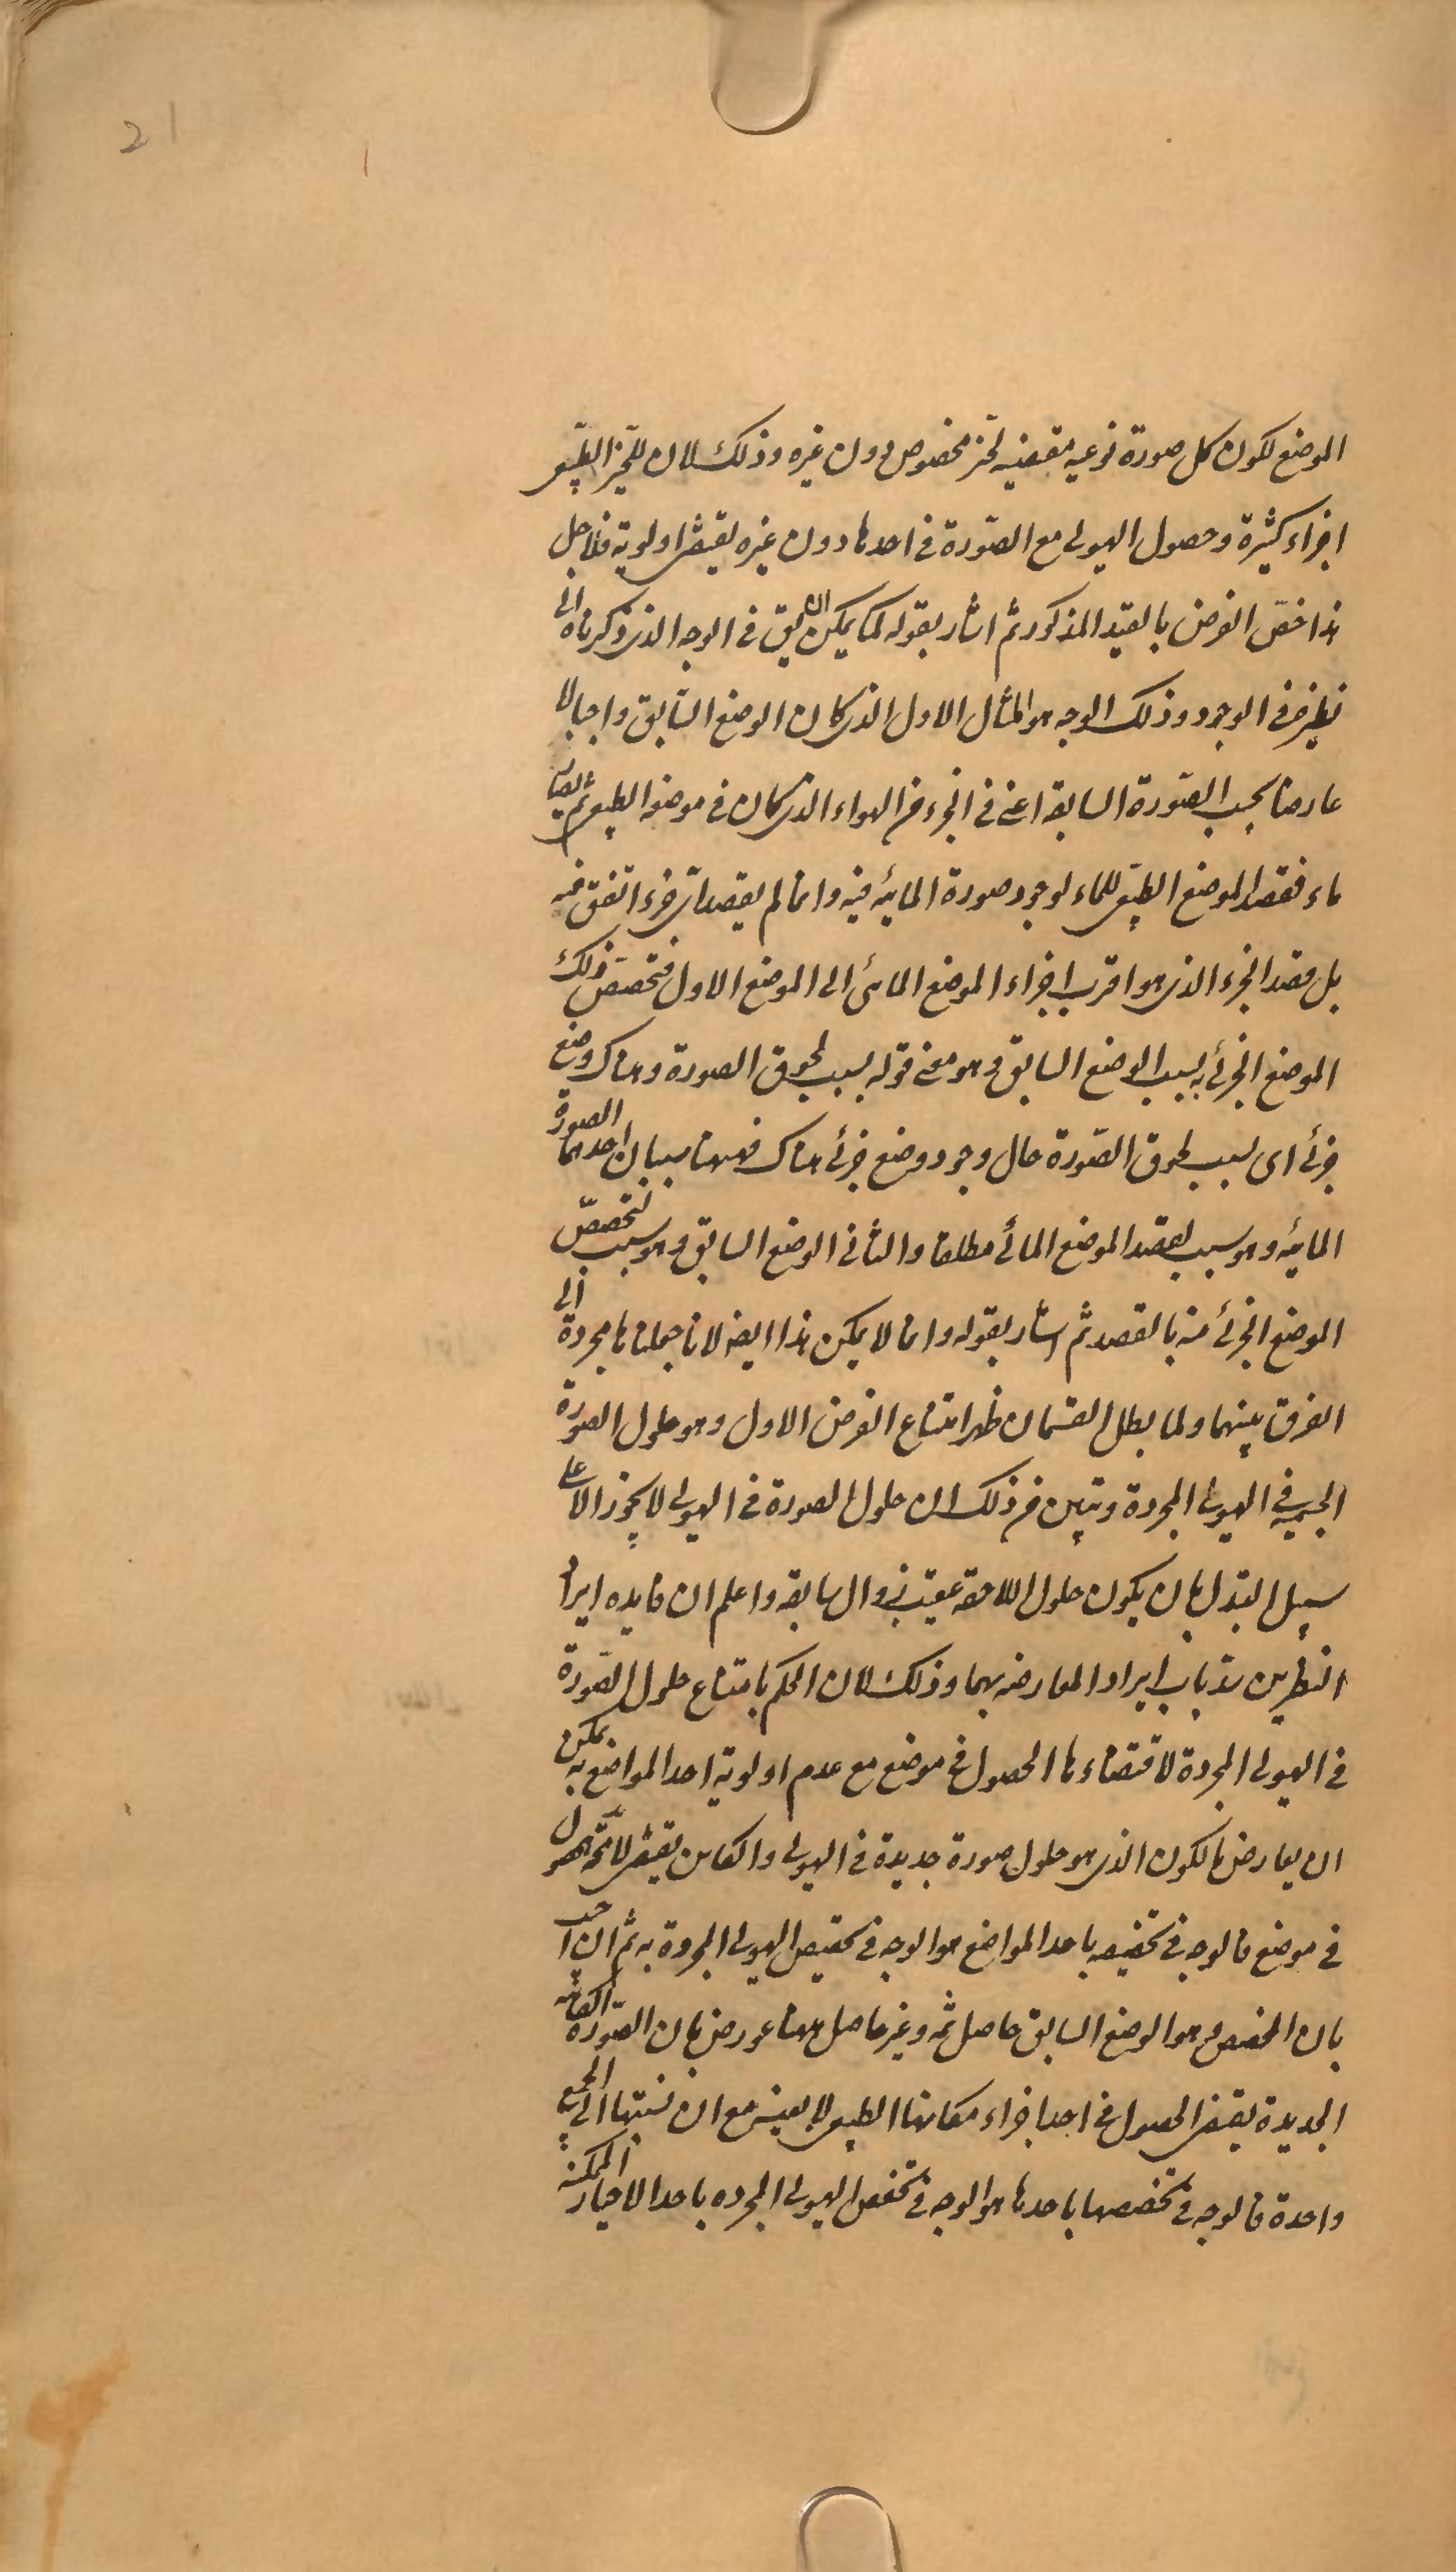 21
الموضع لكون كل صورة نوعيه مقتضيه لحيّز مخصوص دون غيره وذلك لان للحيّز الطبيعى
اجزاء كثيرة وحصول الهيولى مع الصّورة فى احدها دون غيره يقتضى اولوية فلاجل
هذا خصّ الفرض بالقيد المذكور ثم اشار بقوله كما يمكن ان يق فى الوجه الذى ذكرناه الى
نظيره فى الوجود وذلك الوجه هو المثال الاول الذى كان الوضع السّابق واجبا لا
عارضا بحسب الصّورة السابقة اعنى فى الجزء من الهواء الذى كان فى موضعه الطبيعى ثم صار
ماء فقصد الموضع الطبيعى للماء لوجود صورة المائيه فيه وانما لم يقصد اىّ جزء اتّفق منه
بل قصد الجزء الذى هو اقرب اجزاء الموضع المائى الى الموضع الاول فتخصّص ذلك
الموضع الجزئى به بسبب الوضع السابق وهو معنى قوله بسبب لحوق الصورة وهناك وضع
جزئى اى بسبب لحوق الصّورة حال وجود وضع جزئى هناك فههنا سببان احدهما الصورة
المائيه وهو سبب لقصد الموضع المائى مطلقا والثانى الوضع السابق وهو سبب لتخصّص
الموضع الجزئى منه بالقصد ثم اشار بقوله وانما لا يمكن هذا ايضا لانا جعلناها مجردة الى
الفرق بينهما ولما بطل القسمان ظهر امتناع الفرض الاول وهو حلول الصورة
الجسمية فى الهيولى المجردة وتبين من ذلك ان حلول الصورة فى الهيولى لا يجوز الا على
سبيل البدل بان يكون حلول اللاحقة عقيب زوال السابقة واعلم ان فايده ايراد
النظيرين سدّ باب ايراد المعارضه بهما وذلك لان الحكم بامتناع حلول الصّورة
فى الهيولى المجردة لاقتضاءها الحصول فى موضع مع عدم اولوية احد المواضع به يمكن
ان يعارض بالكون الذى هو حلول صورة جديدة فى الهيولى والكاين يقتضى لا محة الحصول
فى موضع فالوجه فى تخصيصه باحد المواضع هو الوجه فى تخصيص الهيولى المجردة به ثم ان اجيب
بان المخصص وهو الوضع السابق حاصل ثمّه وغير حاصل ههنا عورض بان الصّورة الكائنه
الجديدة يقتضى الحصول فى احد اجزاء مكانها الطبيعى لا بعينه مع ان نسبتها الى الجميع
واحدة فالوجه فى تخصصها باحدها هو الوجه فى تخصص الهيولى المجرده باحد الاحياز الممكنة